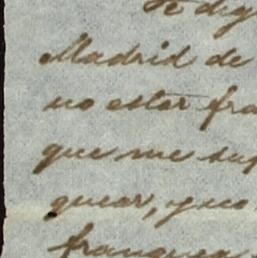 Te dig
Madrid de
no estar fra
que me sup
quear, y no
franquea